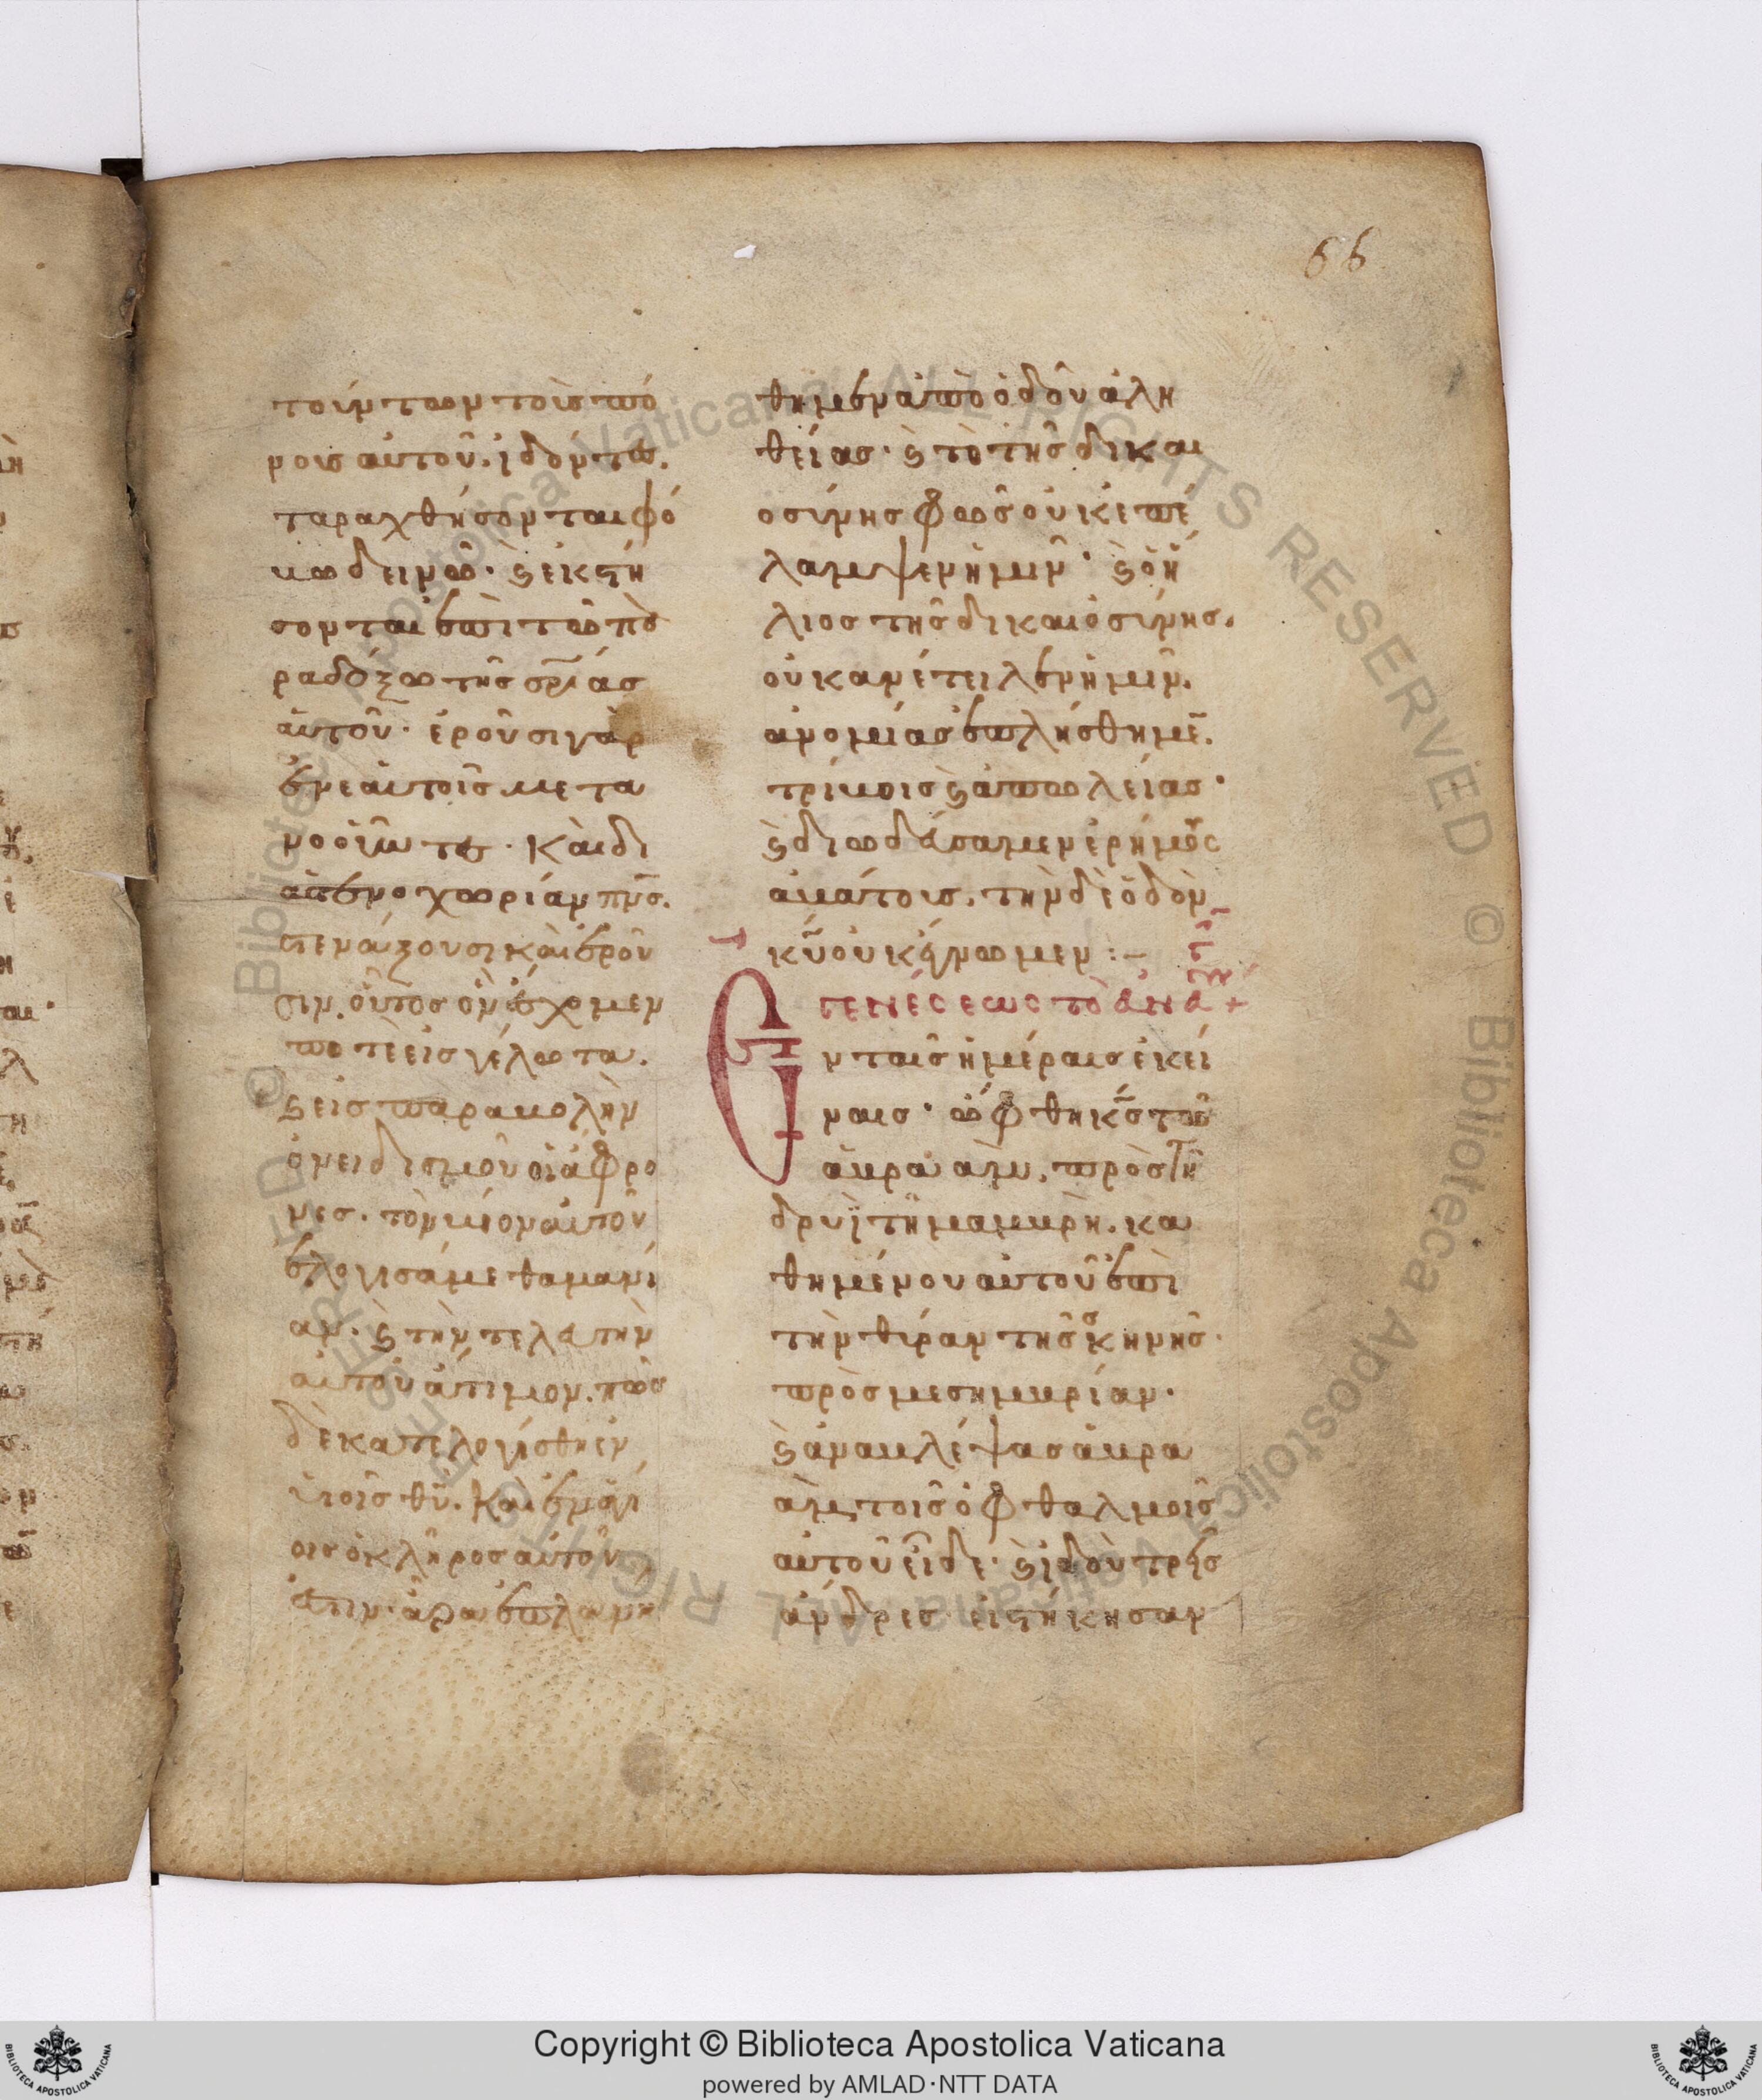 66
τούντων τοὺς πό
νους αὐτοῦ. ἰδόντες
ταραχθήσονται φό
βω δεινῶ· ϗ ἐκστή
σονται ἐπὶ τῶ πα
ραδόξω τῆς σ̅ρ̅ίας
αὐτοῦ· ἐροῦσι γὰρ
ἐν ἑαυτοῖς μετα
νοοῦντες· καὶ δι
α στενοχωρίαν πν̅ς.
στενάζουσι καὶ ἐροῦ
σιν. οὗτος ὃν ἔσχομεν
ποτὲ εἰς γέλωτα.
ϗ εἰς παραβολὴν
ὀνειδισμοῦ οἱ ἄφρο
νες. τὸν βίον αὐτοῦ
ἐλογισάμεθα μανί
αν· ϗ τὴν τελευτὴν
αὐτοῦ ἄτιμον. πῶς
δὲ κατελογίσθη ἐν
υἱοῖς θυ̅. καὶ ἐν ἁγί
οις ὁ κλῆρος αὐτοῦ
ἐστιν· ἄρα ἐπλανή
θημεν ἀπὸ ὁδοῦ ἀλη
θείας· ϗ τὸ τῆς δικαι
οσύνης φῶς οὐκ ἐπέ
λαμψεν ἡμῖν· ϗ ὁ ἥ
λιος τῆς δικαιοσύνης.
οὐκ ἀνέτειλεν ἡμῖν.
ἀνομίας ἐπλήσθημε̅.
τρίβοις ϗ ἀπωλείας·
ϗ διωδεύσαμεν ἐρήμους
ἀβάτους. τὴν δὲ ὁδὸν
κυ̅ οὐκ ἔγνωμεν :–
γενέσεως τὸ ἀνα
Εν ταῖς ἡμέραις ἐκεί
ναις· ὤφθη κ̅ς τῶ
ἀβραὰμ, πρὸς τῆ
δρυῒ τῆ μαμβρῆ. κα
θημένου αὐτοῦ ἐπὶ
τὴν θύραν τῆς σκηνῆς·
πρὸς μεσημβρίαν·
ϗ ἀναβλέψας ἀβρα
ὰμ τοῖς ὀφθαλμοῖς
αὐτοῦ εἶδε· ϗ ἰδοὺ τρεῖς
ἄνδρες εἱστήκησαν
Copyright © Biblioteca Apostolica Vaticana
powered by AMLAD·NTT DATA